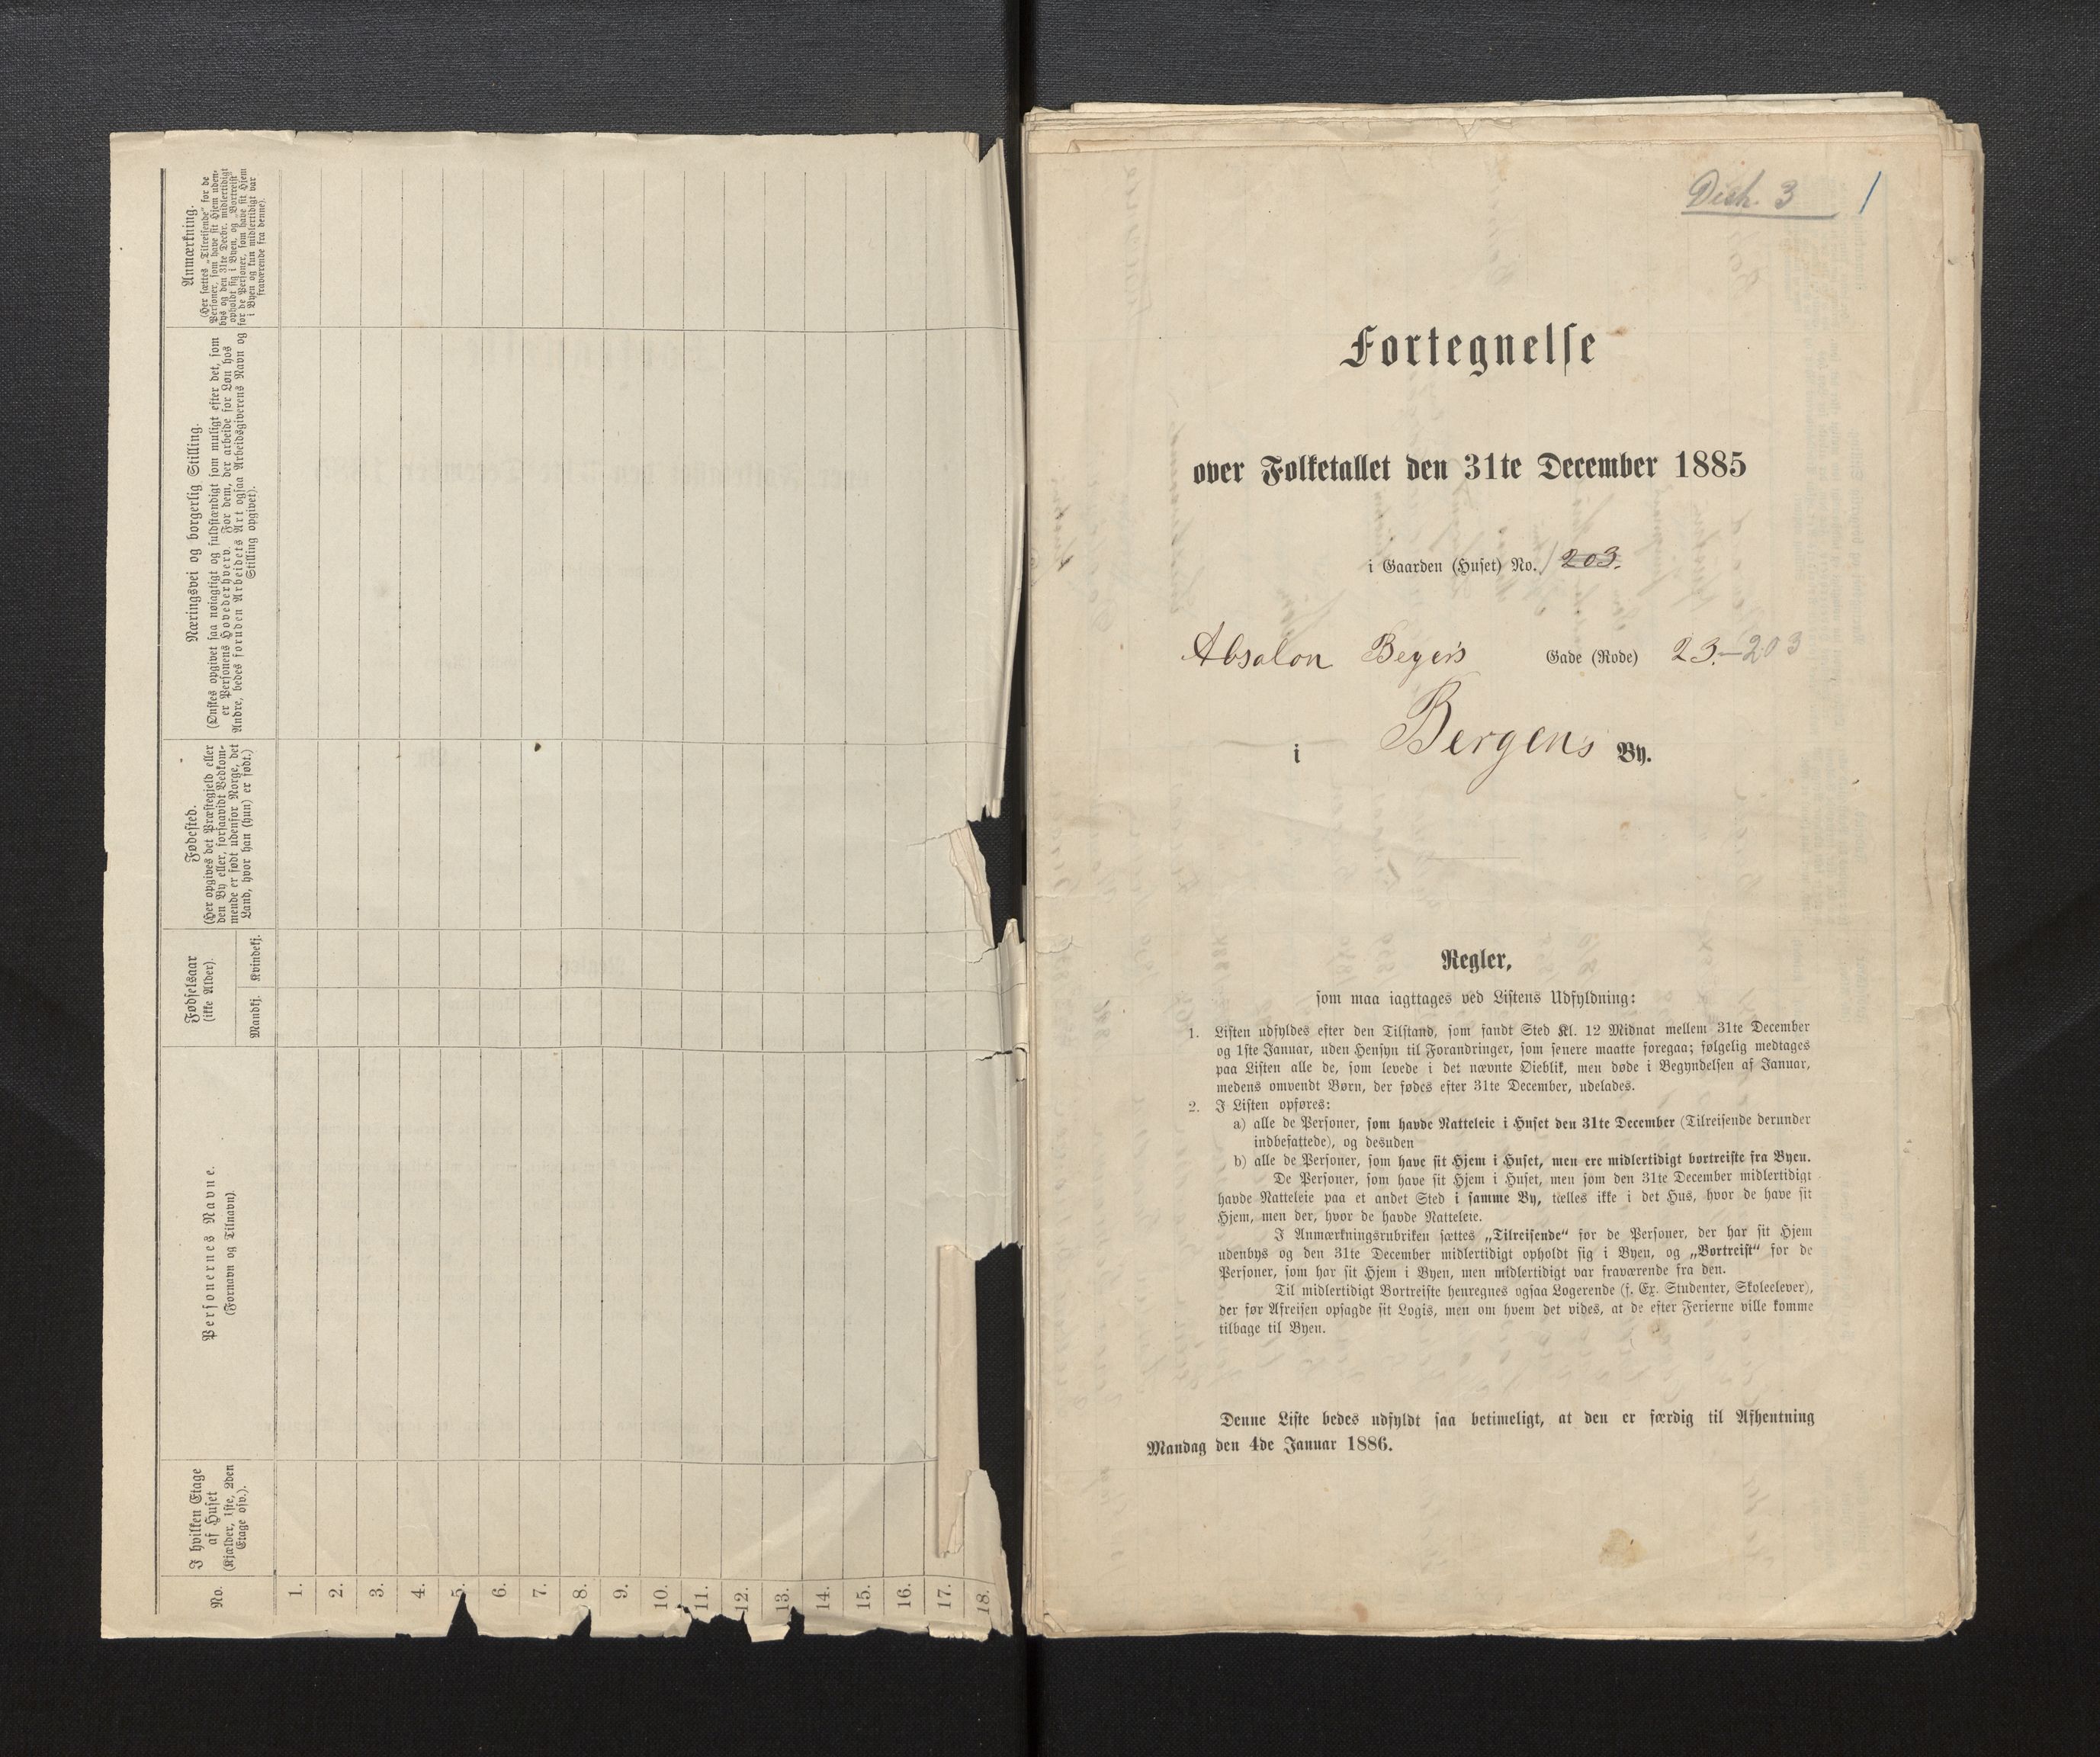 No.
I hvilken Etage
af Huset
(Kjælder, 1ste, 2den
Etage osv.).
Personernes Navne.
(Fornavn og Tilnavn).
Fødselsaar
(ikke Alder).
Mandkj.
Kvindekj.
Fødested.
(Her opgives det Præstegjeld eller
den By eller, forsaavidt Vedkom-
mende er født udenfor Norge, det
Land, hvor han (hun) er født.)
Næringsvei og borgerlig Stilling.
(Ønskes opgivet saa nøiagtigt og fuldstændigt som muligt efter det, som
er Personens Hovederhverv. For dem, der arbeide for Løn hos
Andre, bedes foruden Arbeidets Art ogsaa Arbeidsgiverens Navn og
Stilling opgivet).
Anmærkning.
(Her sættes „Tilreisende“ for de
Personer, som have sit Hjem uden-
bys og den 31te Decbr. midlertidigt
opholdt sig i Byen, og „Bortreist“
for de Personer, som have sit Hjem
i Byen og kun midlertidigt var
fraværende fra denne).
1.
2.
3.
4.
5.
6.
7.
8.
9.
10.
11.
12.
13.
14.
15.
16.
17.
18.
3 1
Fortegnelse
over Folketallet den 31te December 1885
i Gaarden (Huset) No. 203.
Absalon Beyers Gade (Rode) 23.—203
i Bergens By.
Regler,
som maa iagttages ved Listens Udfyldning:
1. Listen udfyldes efter den Tilstand, som fandt Sted Kl. 12 Midnat mellem 31te December
og 1ste Januar, uden Hensyn til Forandringer, som senere maatte foregaa; følgelig medtages
paa Listen alle de, som levede i det nævnte Øieblik, men døde i Begyndelsen af Januar,
medens omvendt Børn, der fødes efter 31te December, udelades.
2. I Listen opføres:
a) alle de Personer, som havde Natteleie i Huset den 31te December (Tilreisende derunder
indbefattede), og desuden
b) alle de Personer, som have sit Hjem i Huset, men ere midlertidigt bortreiste fra Byen.
De Personer, som have sit Hjem i Huset, men som den 31te December midlertidigt
havde Natteleie paa et andet Sted i samme By, tælles ikke i det Hus, hvor de have sit
Hjem, men der, hvor de havde Natteleie.
I Anmærkningsrubriken sættes „Tilreisende“ for de Personer, der har sit Hjem
udenbys og den 31te December midlertidigt opholdt sig i Byen, og „Bortreist“ for de
Personer, som har sit Hjem i Byen, men midlertidigt var fraværende fra den.
Til midlertidigt Bortreiste henregnes ogsaa Logerende (f. Ex. Studenter, Skoleelever),
der før Afreisen opsagde sit Logis, men om hvem det vides, at de efter Ferierne ville komme
tilbage til Byen.
Denne Liste bedes udfyldt saa betimeligt, at den er færdig til Afhentning
Mandag den 4de Januar 1886.